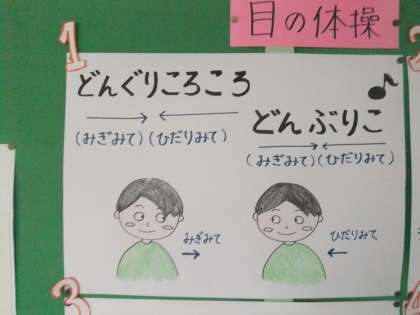 目の体操
1
どんぐりころころ
(みぎみて)(ひだりみて)
どんぶりこ
(みぎみて)(ひだりみて)
みぎみて
ひだりみて
3